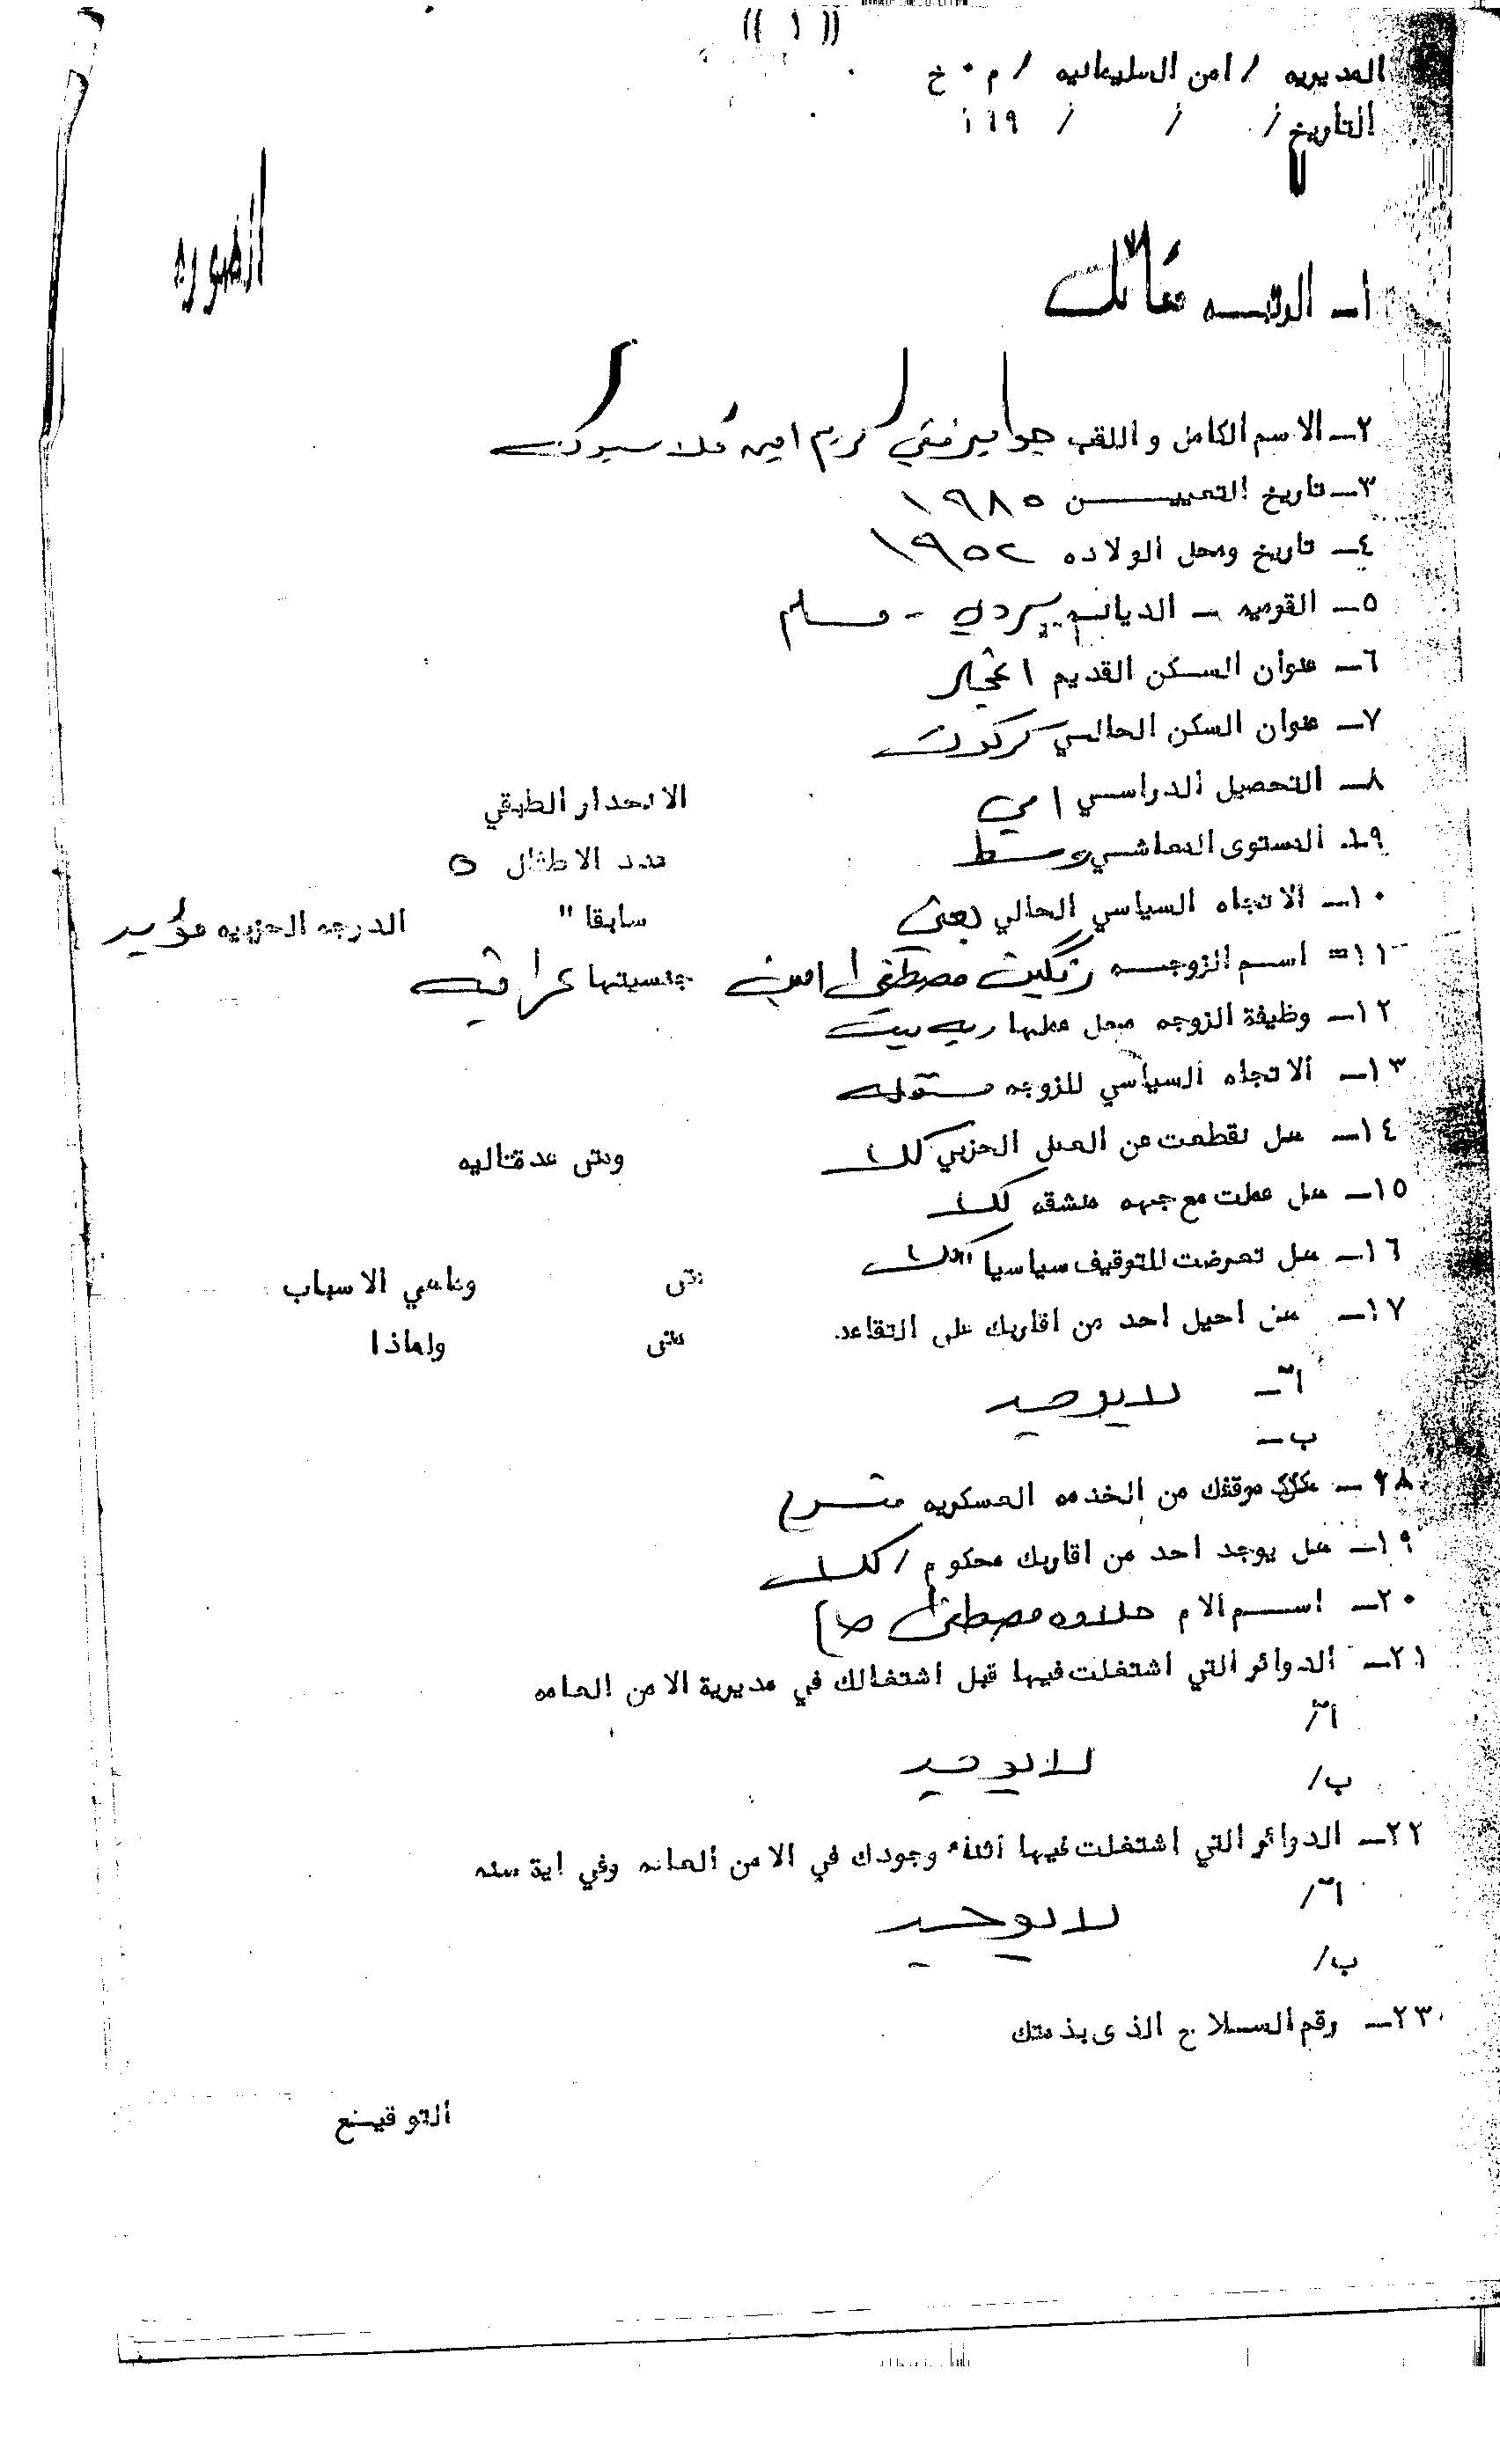 (( ١ ))
المديريه / امن السليمانيه / م ٠ خ
التاريخ / / / ١٩٩
الصوره
١ــ الرتبـــه مقاتل
٢ــ الاسم الكامل واللقب جوامير فقي كريم امين
٣ــ تاريخ التعييـــــن ١٩٨٥
٤ــ تاريخ ومحل الولاده ١٩٥٢
٥ــ القوميه ــ الديانــه كردي - مسلم
٦ــ عنوان السكن القديم
٧ــ عنوان السكن الحالـي كركوك
٨ــ التحصيل الدراسـي امي الانحدار الطبقي
٩ــ المستوى المعاشـي وسط عدد الاطفال ٥
١٠ــ الاتجاه السياسي الحالي بعثي سابقا " الدرجه الحزبيه مؤيد
١١ــ اسـم الزوجـــه مصطفى امين جنسيتها عراقيه
١٢ــ وظيفة الزوجه محل عملها ربه بيت
١٣ــ الاتجاه السياسي للزوجه مستقله
١٤ــ هل نقطعت عن العمل الحزبي كلا ومتى
١٥ــ هل عملت مع جهه منشقه كلا
١٦ــ هـل تعرضت للتوقيف سياسيا كلا متى وماهي الاسباب
١٧ــ هل احيل احد من اقاربك على التقاعد متى ولماذا
أ ــ لايوجد
ب ــ
١٨ــ موقفك من الخدمه العسكريه متسرح
١٩ــ هل يوجد احد من اقاربك محكوم / كلا
٢٠ــ اســـم الام حلاوه مصطفى
٢١ــ الدوائر التي اشتغلت فيها قبل اشتغالك في مديرية الامن العامه
أ /
لايوجد
ب /
٢٢ــ الدوائر التي اشتغلت فيها اثناء وجودك في الامن العامه وفي اية سنه
أ /
لايوجد
ب /
٢٣ــ رقم السـلاح الذى بذمتك
التوقيـع